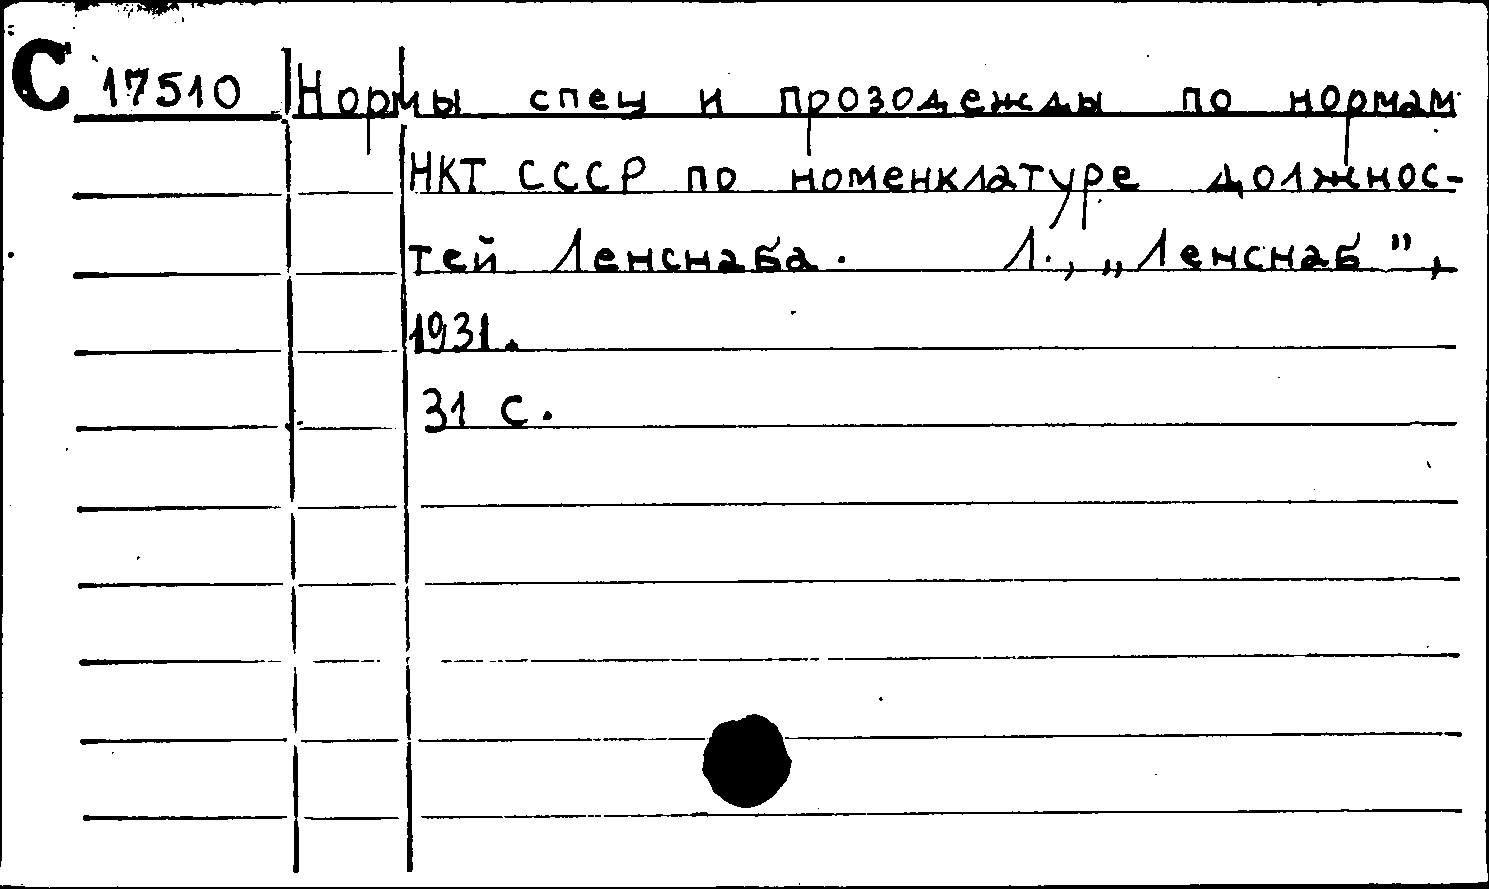 С 17510 Нормы спец и прозодежды по нормам
НКТ СССР по номенклатуре должнос-
тей Ленснаба. Л., „Ленснаб",
1931.
31 с.